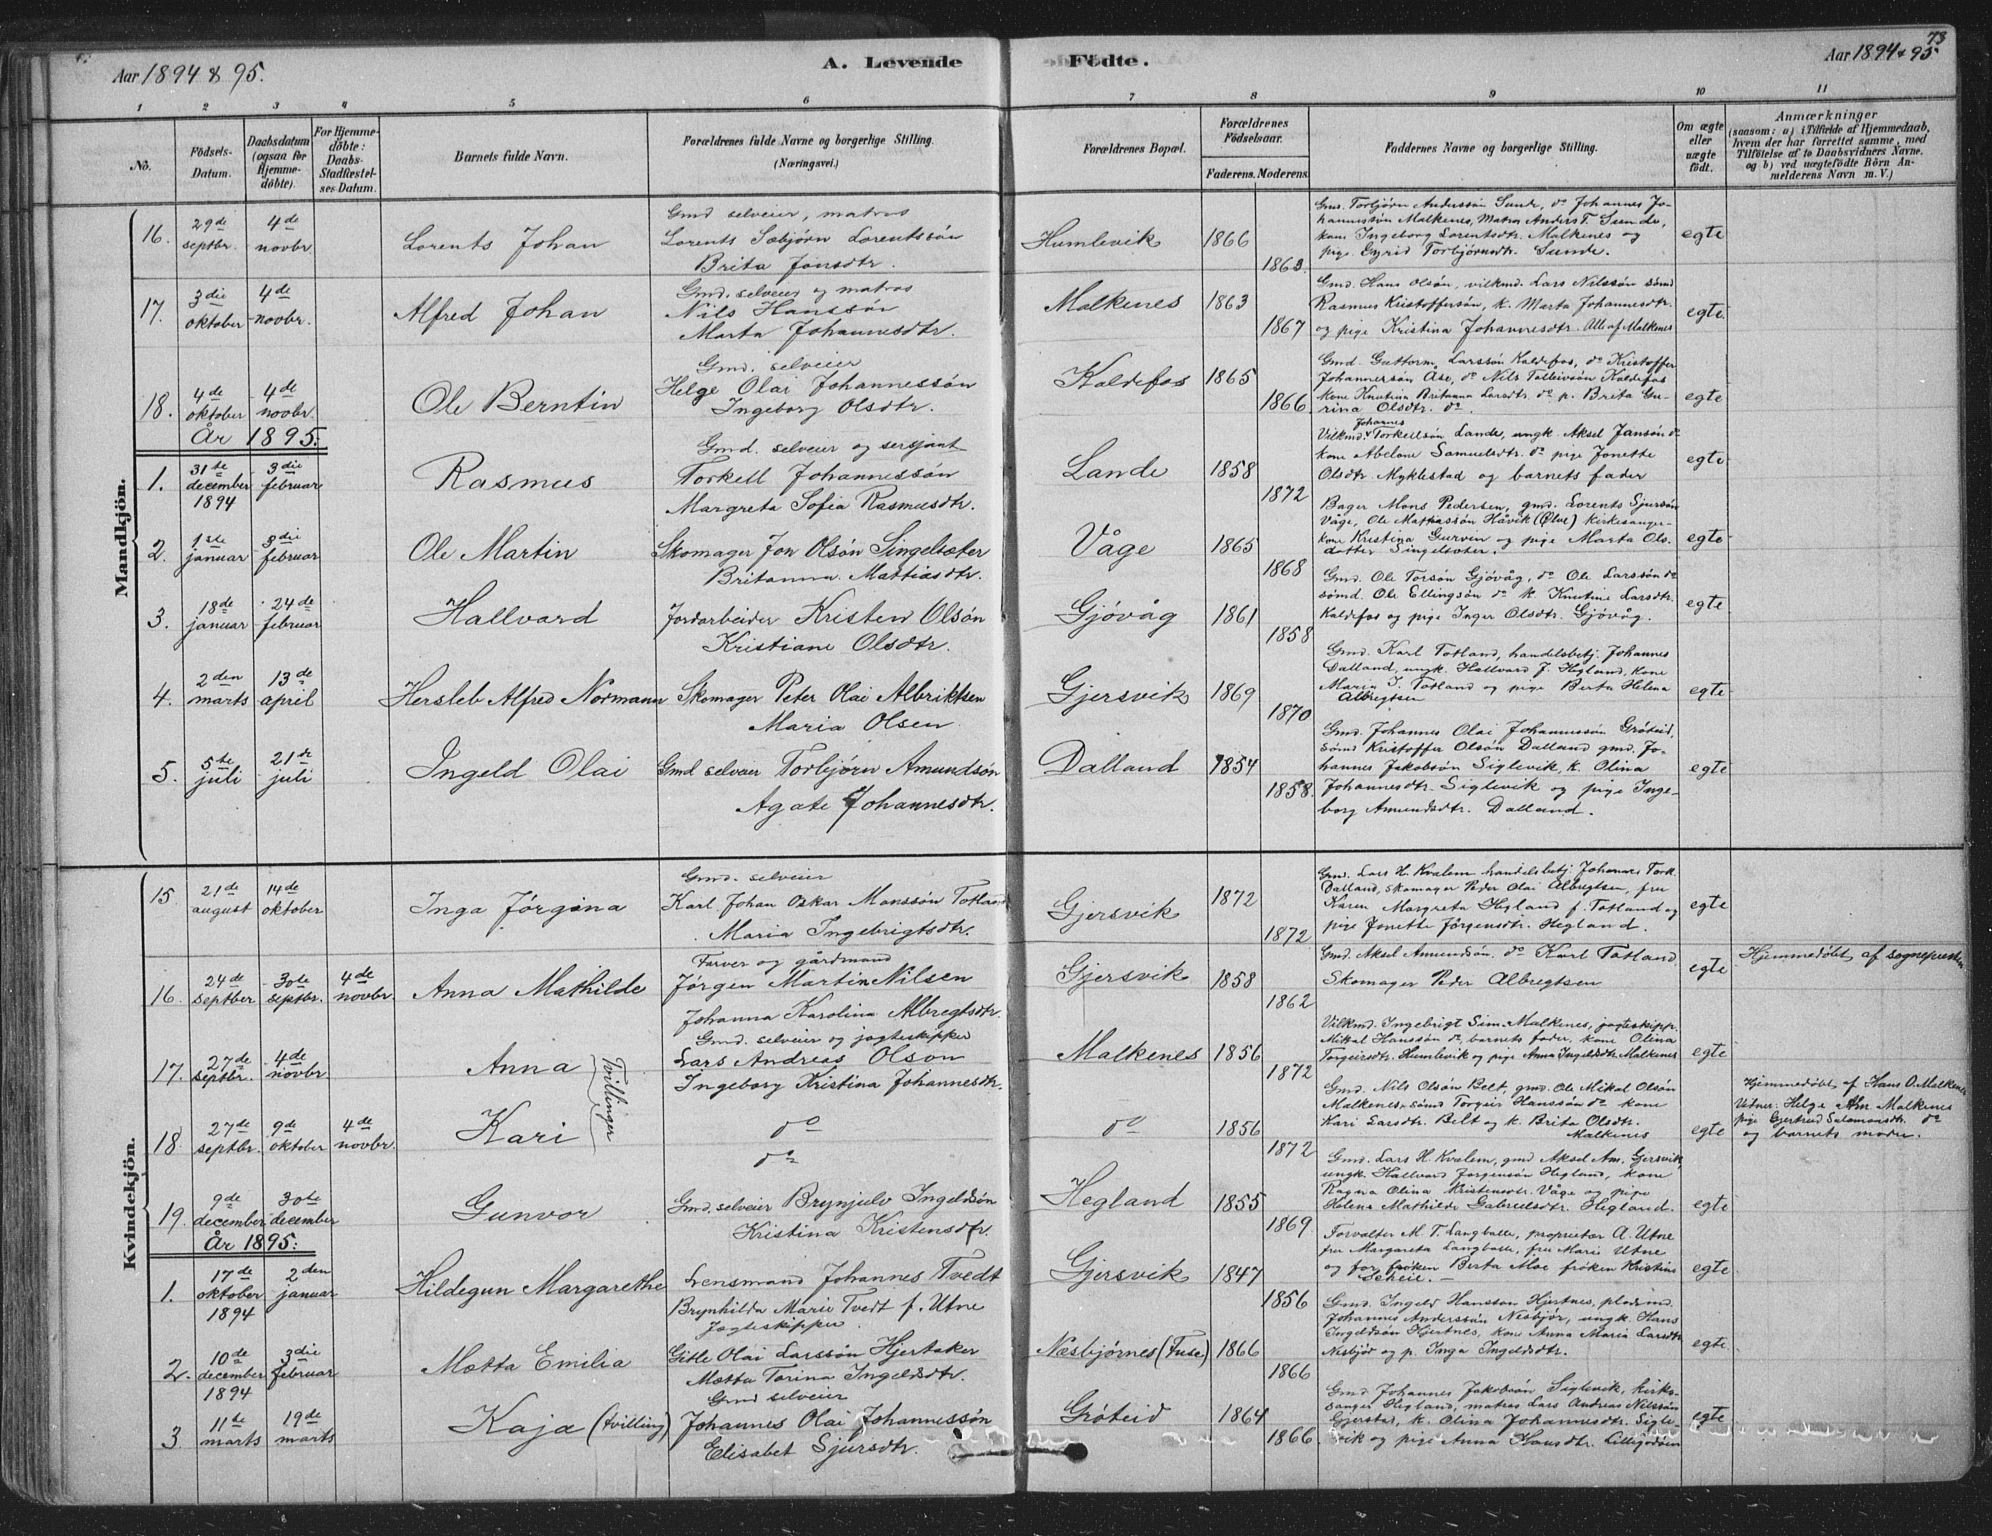 Aar 1894 & 95.
A. Levende
Födte.
73
Aar 1894 & 95
1 2 3 4 5 6 7 8 9 10 11
No.
Födsels-Datum.
Daabsdatum (ogsaa for Hjemme-döbte).
For Hjemme-döbte: Daabs-Stadfæstel-ses Datum.
Barnets fulde Navn.
Forældrenes fulde Navne og borgerlige Stilling. (Næringsvei.)
Forældrenes Bopæl.
Forældrenes Födselsaar.
Faderens. Moderens.
Faddernes Navne og borgerlige Stilling.
Om ægte eller uægte födt.
Anmærkninger
(saasom: a) i Tilfælde af Hjemmedaab, hvem der har forrettet samme, med Tilföielse af to Daabsvidners Navne, og b) ved uægtefödte Börn An-melderens Navn m. V.)
Mandkjön.
16. 29de septbr. 4de novbr. Lorents Johan
Gmd selveier, matros
Lorents Sæbjörn Lorentssön
Brita Jonsdtr.
Humlevik 1866 1863.
Gmd. Torbjörn Anderssön Sunde, do Johannes Jo-
hannessön Malkenes, Matros Anders T. Sunde,
kone Ingeborg Lorentsdtr. Malkenes og
pige Gyrid Torbjörnsdtr. Sunde.
egte
17. 3die oktober 4de novbr. Alfred Johan
Gmd. selveier og matros
Nils Hanssön
Marta Johannesdtr.
Malkenes 1863 1867
Gmd. Hans Olsön, vilkmd. Lars Nilssön sömd
Rasmus Kristoffersön, k. Marta Johannesdtr.
og pige Kristina Johannesdtr. Alle af Malkenes
egte.
18. 4de oktober 4de novbr. Ole Berntin
Gmd. selveier
Helge Olai Johannessön
Ingeborg Olsdtr.
Kaldefos 1865 1866
Gmd. Guttorm Larssön Kaldefos, do Kristoffer
Johannersön Åse, do Nils Tolleivsön Kaldefos
kone Knutina Britanna Larsdtr. do p. Brita Gu-
rina Olsdtr. do.
egte
År 1895:
1. 31te december 1894 3die februar Rasmus
Gmd. selveier og sersjant
Torkell Johannessön
Margreta Sofia Rasmusdtr.
Lande 1858 1872
Vilkmd. Johannes Torkellsön Lande, ungk. Aksel Jansön do
kone Abelone Samuelsdtr. do pige Jonette
Olsdtr. Myklestad og barnets fader
egte
2. 1ste januar 3die februar Ole Martin
Skomager Jon Olsön Singelsæter
Britanna Mattiasdtr.
Våge 1865 1868
Bager Mons Pedersen, gmd. Lorents Sjursön
Våge, Ole Mattiassön Håvik (Ølve) kirkesanger
kone Kristina Gurvin og pige Marta Ols-
datter Singelsæter.
egte
3. 18de januar 24de februar Hallvard
Jordarbeider Kristen Olsön
Kristiane Olsdtr.
Gjövåg 1861 1858
Gmd. Ole Torsön Gjövåg, do Ole Larssön do
sömd. Ole Ellingsön do k. Knutine Larsdtr.
Kaldefos og pige Inger Olsdtr. Gjövåg.
egte
4. 2den marts 13de april Hersleb Alfred Normann
Skomager Peter Olai Albriktsen
Maria Olsen
Gjersvik 1869 1870
Gmd. Karl Totland, handelsbetj. Johannes
Dalland, ungk. Hallvard J. Hegland, kone
Maria I. Totland og pige Berta Helena
Albregtsen
egte
5. 5te juli 21de juli Ingeld Olai
Gmd selveier Torbjörn Amundsön
Agate Johannesdtr.
Dalland 1854 1858.
Gmd. Johannes Olai Johannessön Gröteid,
sömd Kristoffer Olsön Dalland gmd. Jo-
hannes Jakobsön Siglevik, k. Olina
Johannesdtr. Siglevik og pige Inge-
borg Amundsdtr. Dalland.
egte
Kvindekjön.
15. 21de august 14de oktober Inga Jörgina
Gmd. selveier
Karl Johan Oskar Monssön Totland
Maria Ingebrigtsdtr.
Gjersvik 1872 1872
Gmd. Lars H. Kvalem handelsbetj. Johannes Tork.
Dalland, skomager Peder Olai Albregtsen, fru
Karen Margreta Hegland f. Totland og
pige Jonette Jörgensdtr. Hegland.
egte
16. 24de septber 30te septbr. 4de novbr. Anna Mathilde
Farver og gårdmand
Jörgen Martin Nilsen
Johanna Karolina Albregtsdtr.
Gjersvik 1858 1862
Gmd. Aksel Amundsön. do Karl Totland
Skomager Peder Albregtsen
egte
Hjemmedöbt af sognepresten
17. 27de septbr. 4de novbr Anna
Tvillinger
Gmd. selveier og jagteskipper
Lars Andreas Olson
Ingeborg Kristina Johannesdtr.
Malkenes 1856 1872
Vilkmd. Ingebrigt Sim. Malkenes, jagteskipp.
Mikal Hanssön do barnets fader, kone Olina
Torgeirsdtr. Humlevik og pige Anna Ingeldsdtr Malkenes
egte
18. 27de septbr. 9de oktober 4de novbr. Kari
do
do
do 1856 1872
Gmd. Nils Olsön Belt, gmd. Ole Mikal Olsön
Malkenes, sömd Torgeir Hanssön do kone
Kari Larsdtr. Belt og k. Brita Olsdtr.
Malkenes
egte
Hjemmedöbt af Hans O. Malkenes
Vidner: Helge Am Malkenes
pige Gjertrud Salamonsdtr. do
og barnets moder.
19. 9de december 30te december Gunvor
Gmd. selveier Brynjulv Ingeldsön
Kristina Kristensdtr.
Hegland 1855 1869
Gmd. Lars H. Kvalem, gmd Aksel Am. Gjersvik,
ungk. Hallvard Jörgensön Hegland, kone
Ragna Olina Kristensdtr. Våge og pige
Helena Mathilde Gabrielsdtr. Hegland.
egte
År 1895:
1. 17de oktober 1894 2den januar Hildegun Margarethe
Lensmand Johannes Tvedt
Brynhilda Marie Tvedt f. Utne
Gjersvik 1847 1856
Forvalter M. T. Langballe, proprietær A. Utne
fru Margareta Langballe, fru Marie Utne
og frk. fröken Berta Moe fröken Kristine
Scheie.
egte
2. 10de december 1894 3die februar Mætta Emilia
Jagteskipper
Gitle Olai Larssön Hjertaker
Mætta Torina Ingeldsdtr.
Næsbjörnes (Fuse) 1866 1866
Gmd. Ingeld Hansson Hjertnes, pladsmd.
Johannes Anderssön Nesbjör, ungk. Hans
Ingeldsön Hjertnes, kone Anna Maria Larsdtr
Nesbjör og p. Inga Ingeldsdtr.
egte
3 11te marts 19de marts Kaja (tvilling)
Gmd selveier
Johannes Olai Johannessön
Elisabet Sjursdtr.
Gröteid 1864 1866
Gmd Johannes Jakobsön Siglevik, kirke-
sanger Hegland, matros Lars Andreas Nilssön
Gjerstad, k. Olina Johannesdtr. Sigle-
vik og pige Anna Hansdtr.
egte